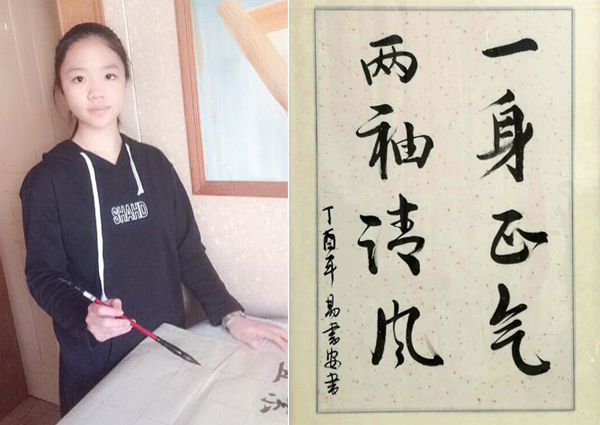 SHAHD
一身正气
两袖清风
丁酉年 易書安書